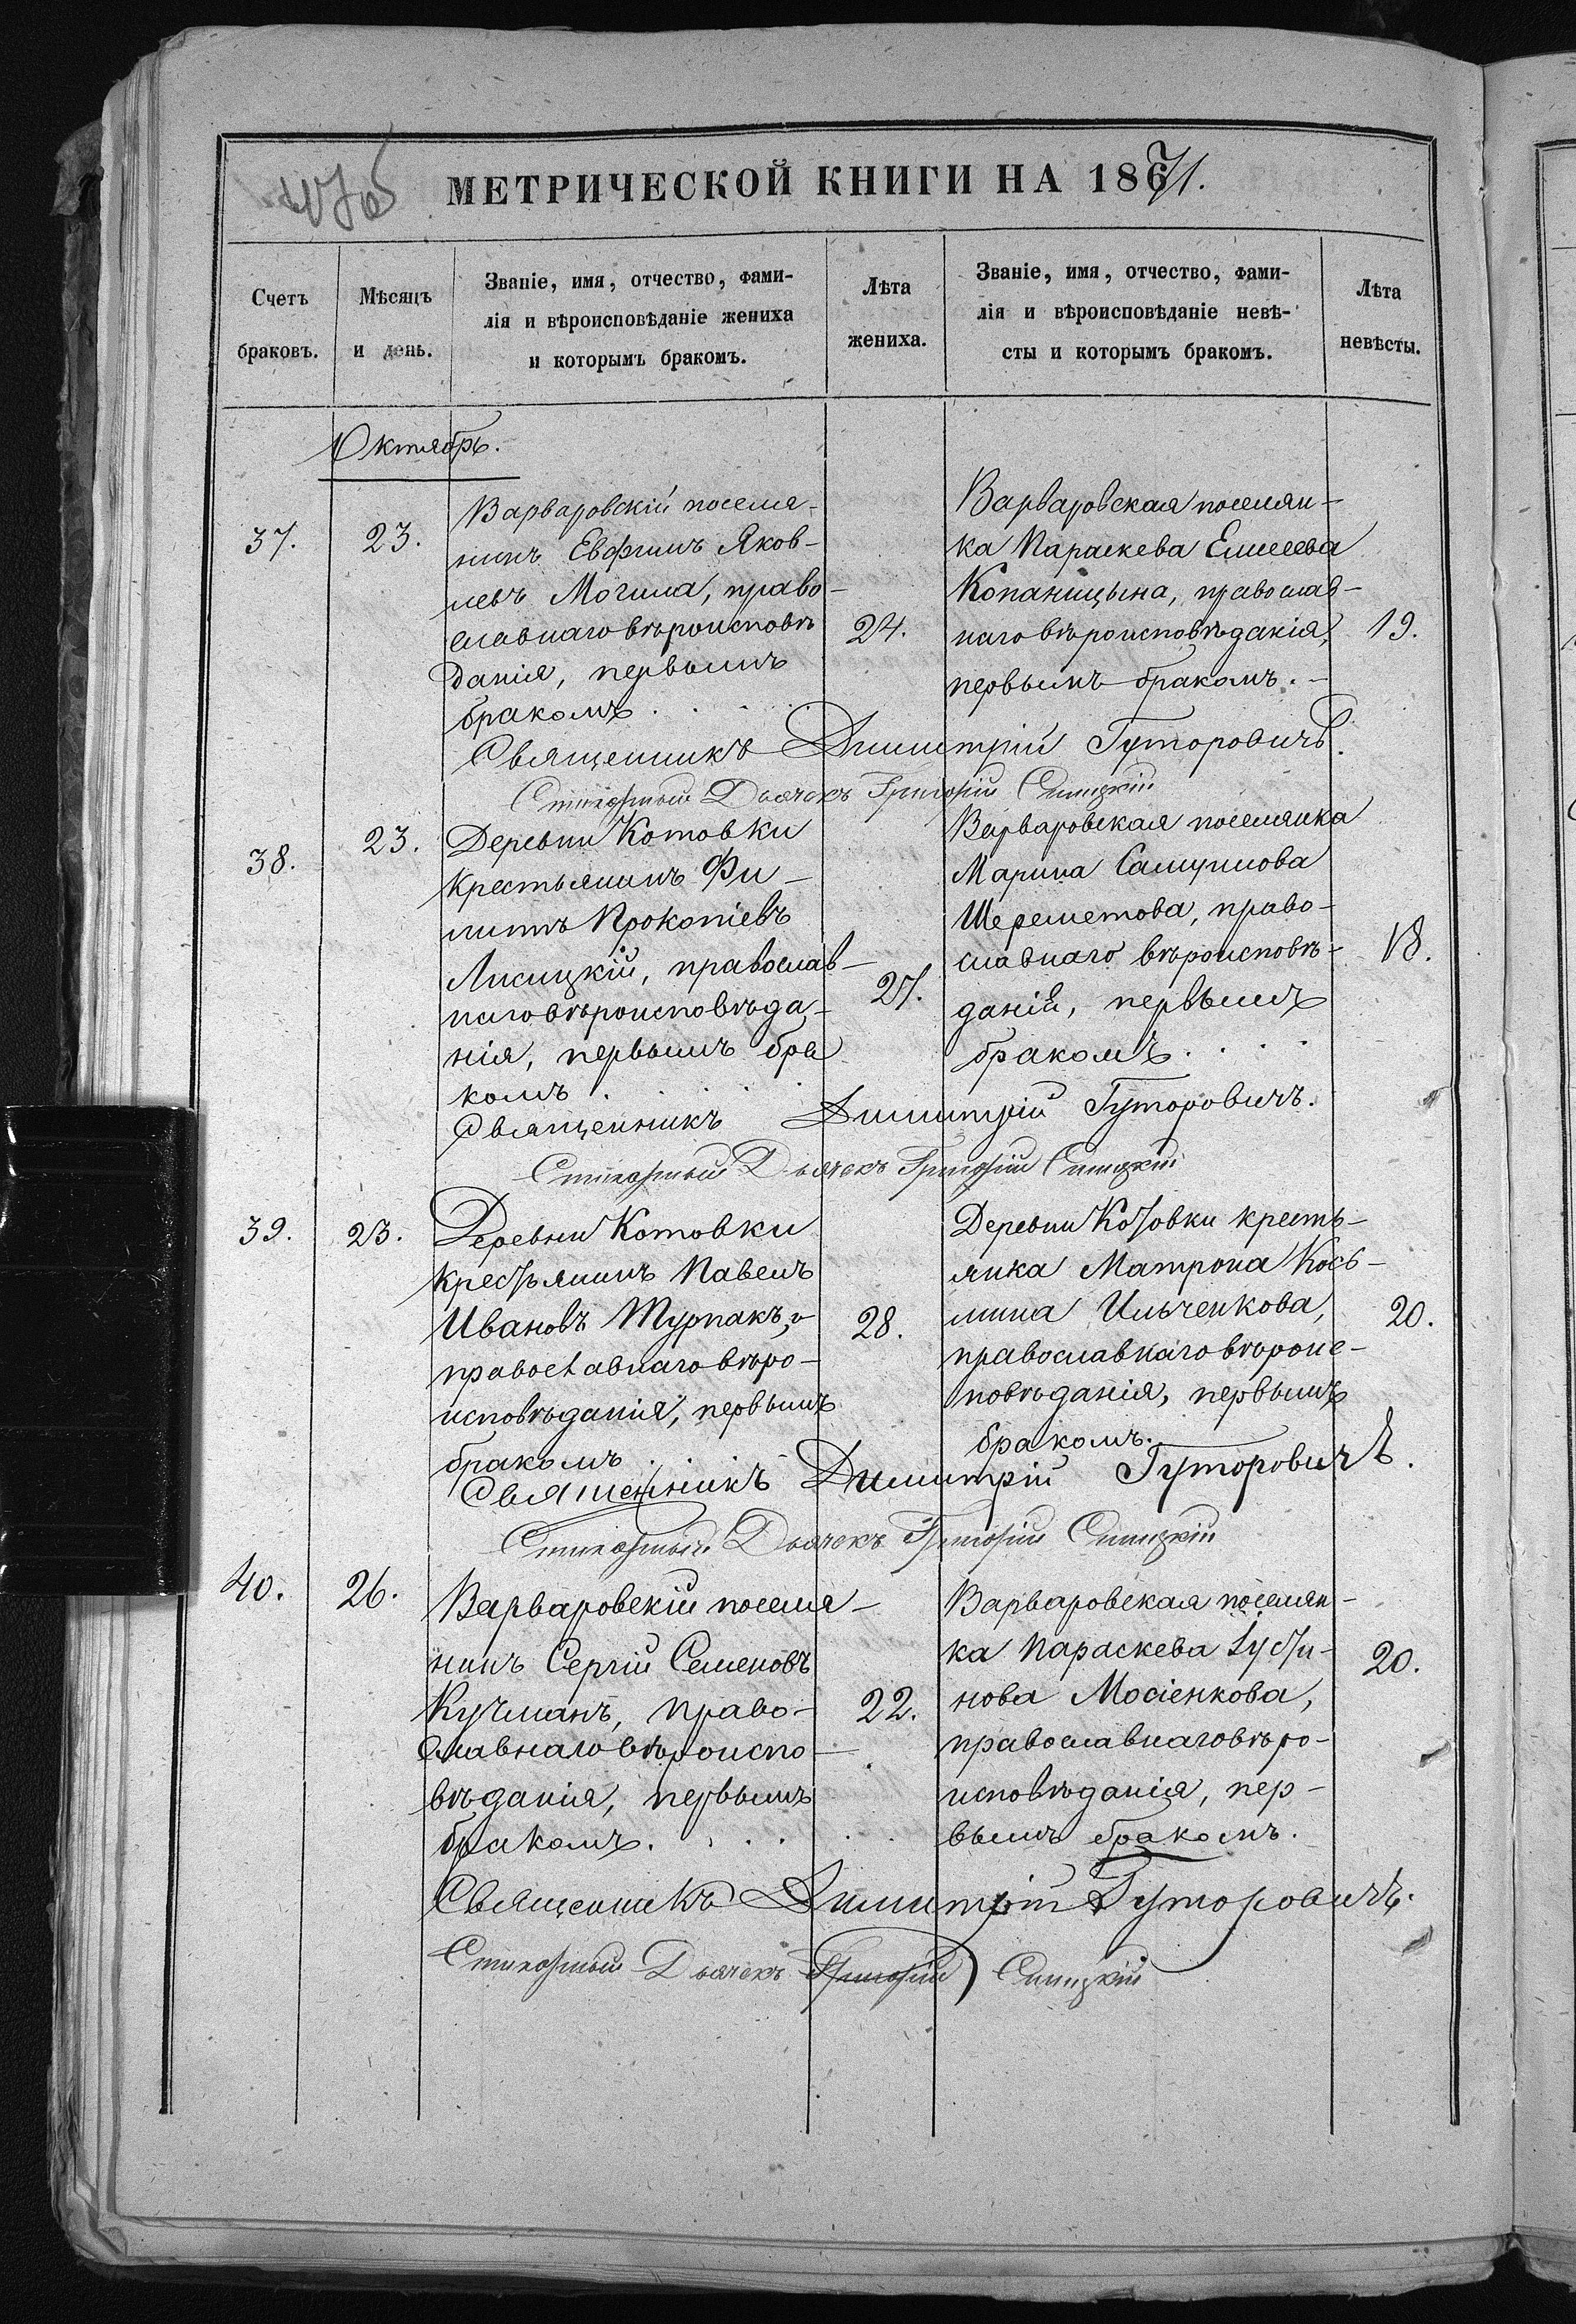 МЕТРИЧЕСКОЙ КНИГИ НА 1871.
Счетъ
браковъ.
Мѣсяцъ
и день.
Званіе, имя, отчество, фами-
лія и вѣроисповѣданіе жениха
и которымъ бракомъ.
Лѣта
жениха.
Званіе, имя, отчество, фами-
лія и вѣроисповѣданіе невѣ-
сты и которымъ бракомъ.
Лѣта
невѣсты.
Октябрь.
37.
23.
Варваровскій поселя-
нинъ Евфимъ Яков-
левъ Могила, право-
славнаго вѣроисповѣ
данія, первымъ
бракомъ.
24.
Варваровская поселян-
ка Параскева Елисеева
Копаницына, православ-
наго вѣроисповѣданія,
первымъ бракомъ.
19.
Священникъ Димитрій Гуторовичъ.
Стихарный Дьячекъ Григорій
38.
23.
Деревни Котовки
крестьянинъ Фи-
липпъ Прокопіевъ
Лисицкій, православ-
наго вѣроисповѣда-
нія, первымъ бра
комъ.
27.
Варваровская поселянка
Марина Самуилова
Шереметова, право-
славнаго вѣроисповѣ-
данія, первымъ
бракомъ.
18.
Священникъ Димитрій Гуторовичъ.
Стихарный Дьячекъ Григорій
39.
23.
Деревни Котовки
крестьянинъ Павелъ
Ивановъ Турпакъ,
православнаго вѣро-
исповѣданія, первымъ
бракомъ.
28.
Деревни Котовки кресть-
янка Матрона Кось-
мина Ильченкова,
православнаго вѣроис-
повѣданія, первымъ
бракомъ.
20.
Священникъ Димитрій Гуторовичъ.
Стихарный Дьячекъ Григорій
40.
26.
Варваровскій поселя-
нинъ Сергій Семеновъ
Кучманъ, право-
славнаго вѣроиспо-
вѣданія, первымъ
бракомъ.
22.
Варваровская поселян-
ка Параскева Іусти-
нова Мосіенкова,
православнаго вѣро-
исповѣданія, пер-
вымъ бракомъ.
20.
Священникъ Димитрій Гуторовичъ.
Стихарный Дьячекъ Григорій